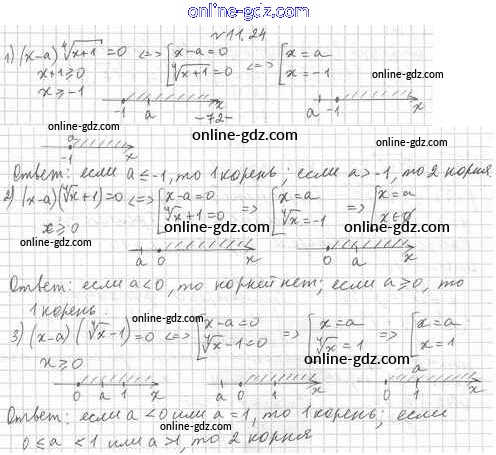 online-gdz.com
№11.24
1) (x-a)⁴√(x+1) = 0 <=> [x-a=0 ⁴√(x+1) = 0 <=> [x=a x=-1
x+1≥0
x≥-1
online-gdz.com
-1 a x
-72-
a -1 x
online-gdz.com
online-gdz.com
a
-1 x
online-gdz.com
Ответ: если a≤-1, то 1 корень; если a>-1, то 2 корня
2) (x-a)(⁴√x+1)=0 <=> [x-a=0 ⁴√x+1=0 => [x=a ⁴√x=-1 => [x=a x∈∅
x≥0
online-gdz.com
online-gdz.com
online-gdz.com
a 0 x
0 a x
Ответ: если a<0, то корней нет; если a≥0, то
1 корень.
online-gdz.com
online-gdz.com
3) (x-a)(⁴√x-1)=0 <=> [x-a=0 ⁴√x-1=0 => [x=a ⁴√x=1 => [x=a x=1
x≥0
0 a 1 x
a 0 1 x
a
0 1 x
online-gdz.com
online-gdz.com
Ответ: если a<0 или a=1, то 1 корень; если
0≤a<1 или a>1, то 2 корня
online-gdz.com